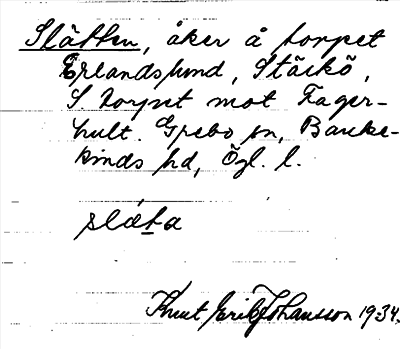 Slätten, åker å torpet
Erlandslund, Stäckö,
S. torpet mot Fager-
hult. Grebo sn, Banke-
kinds hd, Ögl. l.
slæta
Knut Erik Johansson 1934.